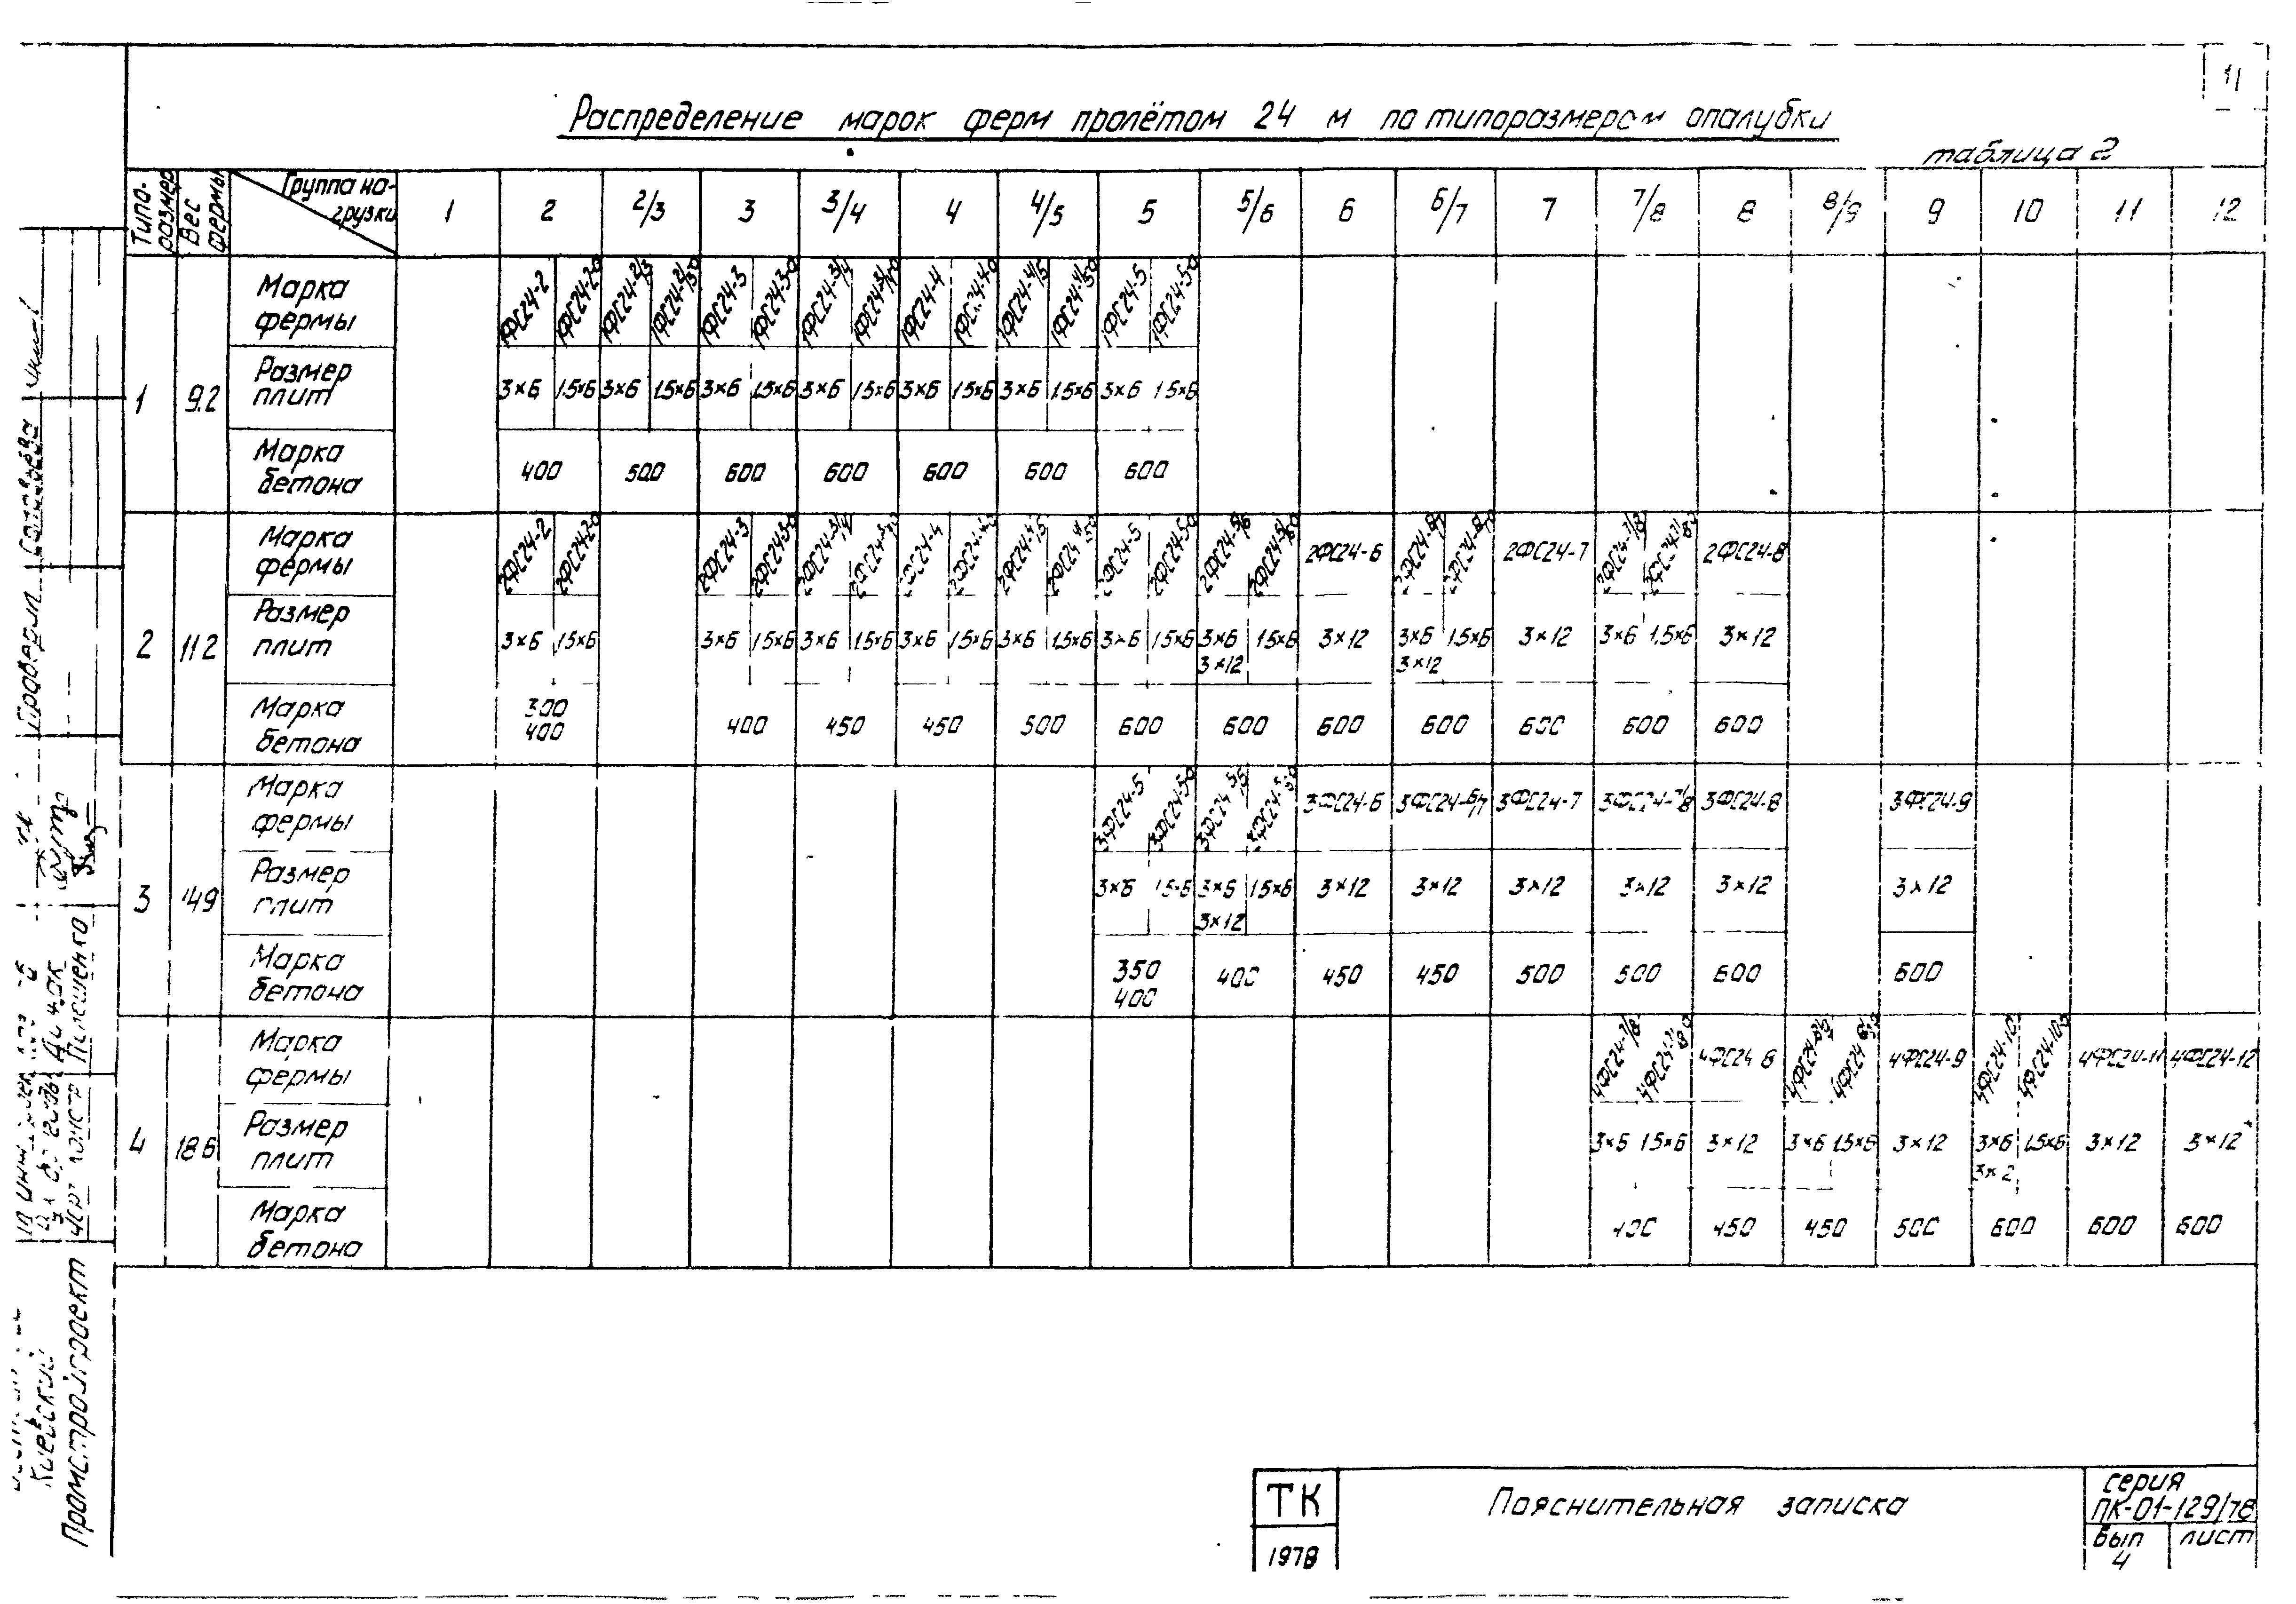 11
Распределение марок ферм пролётом 24 м по типоразмерам опалубки
таблица 2
Типо-размер Вес фермы Группа нагрузки 1 2 2/3 3 3/4 4 4/5 5 5/6 6 6/7 7 7/8 8 8/9 9 10 11 12
1 9.2
Марка фермы 1ФС24-2 1ФС24-2а 1ФС24-2/3 1ФС24-2/3а 1ФС24-3 1ФС24-3а 1ФС24-3/4 1ФС24-3/4а 1ФС24-4 1ФС24-4а 1ФС24-4/5 1ФС24-4/5а 1ФС24-5 1ФС24-5а
Размер плит 3×6 1.5×6 3×6 1.5×6 3×6 1.5×6 3×6 1.5×6 3×6 1.5×6 3×6 1.5×6 3×6 1.5×6
Марка бетона 400 500 600 600 600 600 600
2 11.2
Марка фермы 2ФС24-2 2ФС24-2а 2ФС24-3 2ФС24-3а 2ФС24-3/4 2ФС24-4 2ФС24-4а 2ФС24-4/5 2ФС24-4/5а 2ФС24-5 2ФС24-5а 2ФС24-5/6 2ФС24-5/6а 2ФС24-6 2ФС24-6/7 2ФС24-6/7а 2ФС24-7 2ФС24-7/8 2ФС24-7/8а 2ФС24-8
Размер плит 3×6 1.5×6 3×6 1.5×6 3×6 1.5×6 3×6 1.5×6 3×6 1.5×6 3×6 1.5×6 3×6 1.5×6 3×12 3×6 1.5×6 3×12 3×6 1.5×6 3×12
3×12 3×12
Марка бетона 300 400 450 450 500 600 600 600 600 600 600 600
400
3 14.9
Марка фермы 3ФС24-5 3ФС24-5а 3ФС24-6 3ФС24-6/7 3ФС24-7 3ФС24-7/8 3ФС24-8 3ФС24-9
Размер плит 3×6 1.5×6 3×6 1.5×6 3×12 3×12 3×12 3×12 3×12 3×12
3×12
Марка бетона 350 400 450 450 500 500 600 600
400
4 18.6
Марка фермы 4ФС24-7/8 4ФС24-7/8а 4ФС24-8 4ФС24-8/9 4ФС24-8/9а 4ФС24-9 4ФС24-10 4ФС24-10а 4ФС24-11 4ФС24-12
Размер плит 3×6 1.5×6 3×12 3×6 1.5×6 3×12 3×6 1.5×6 3×12 3×12
3×12
Марка бетона 400 450 450 500 600 600 600
Проверил
Пелешенко
Киевский
Промстройпроект
ТК
1978
Пояснительная записка
серия
ПК-01-129/78
Вып лист
4